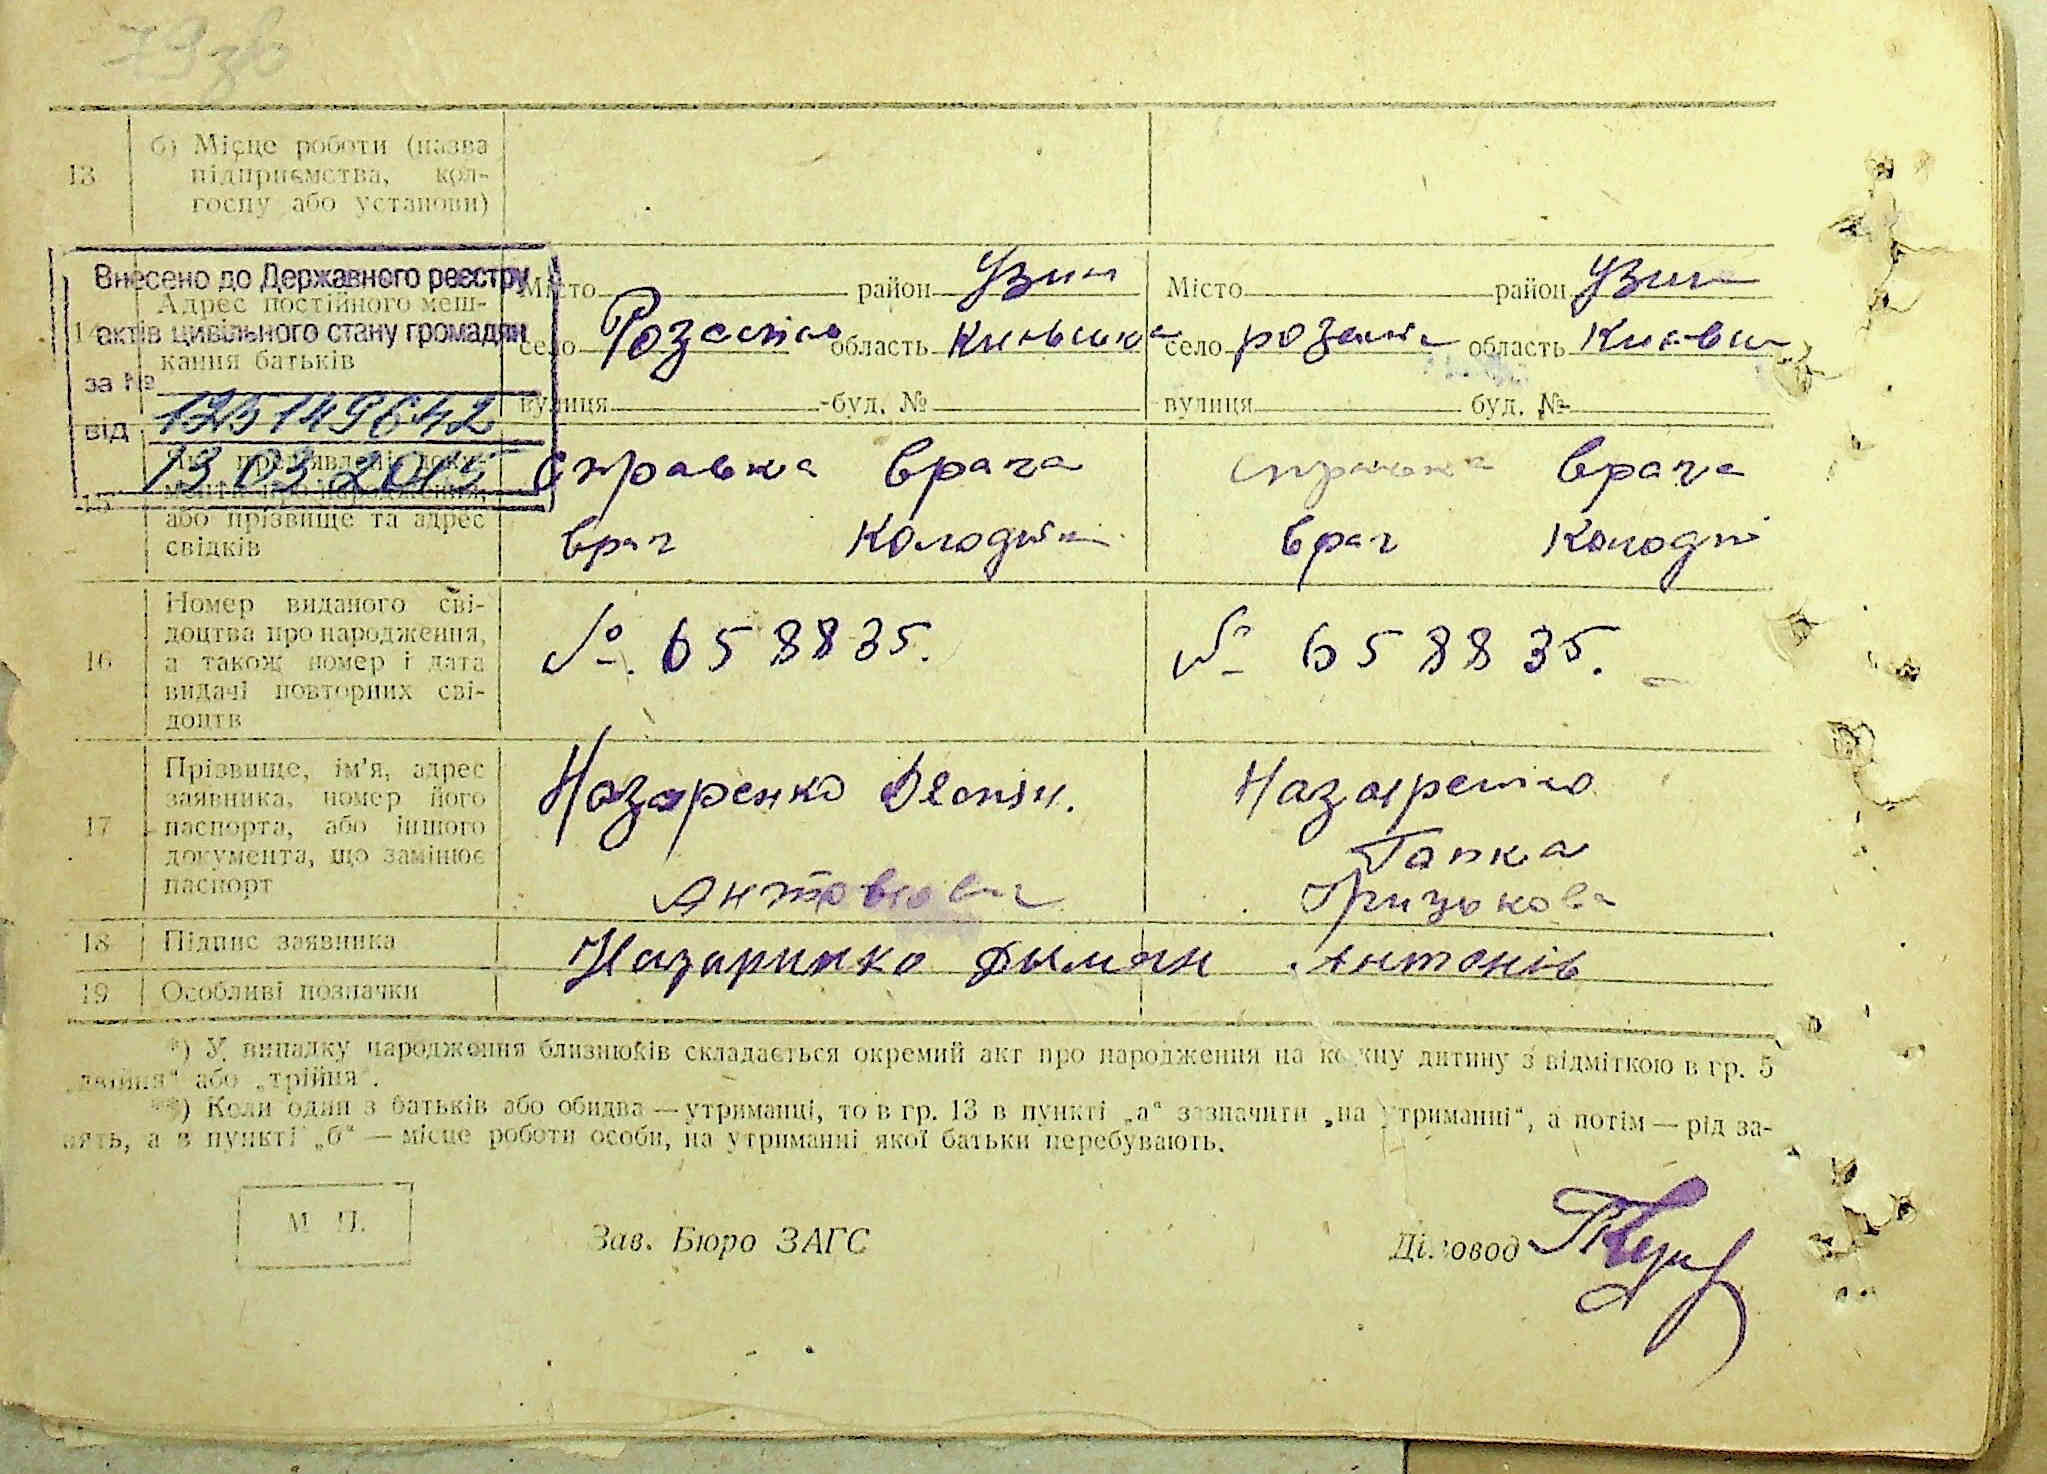 79зв
13 б) Місце роботи (назва
підприємства, кол-
госпу або установи)
Внесено до Державного реєстру
актів цивільного стану громадян
за № 12149642
від 13 03 2015
14 Адрес постійного меш-
кання батьків
Місто район Узин Місто район Узин
село область Київська село область
вулиця буд. № вулиця буд. №
15
або прізвище та адрес
свідків
справка врача справка врача
врач Колодій врач Колодій
16 Номер виданого сві-
доцтва про народження,
а також номер і дата
видачі повторних сві-
доцтв
№. 658835. № 658835.
17 Прізвище, ім'я, адрес
заявника, номер його
паспорта, або іншого
документа, що замінює
паспорт
Назаренко Назаренко
Гапка
18 Підпис заявника
Антонів
19 Особливі позначки
*) У випадку народження близнюків складається окремий акт про народження на кожну дитину з відміткою в гр. 5
„двійня“ або „трійня“.
**) Коли один з батьків або обидва — утриманці, то в гр. 13 в пункті „а“ зазначити „на утриманні“, а потім — рід за-
нять, а в пункті „б“ — місце роботи особи, на утриманні якої батьки перебувають.
М. П. Зав. Бюро ЗАГС Діловод